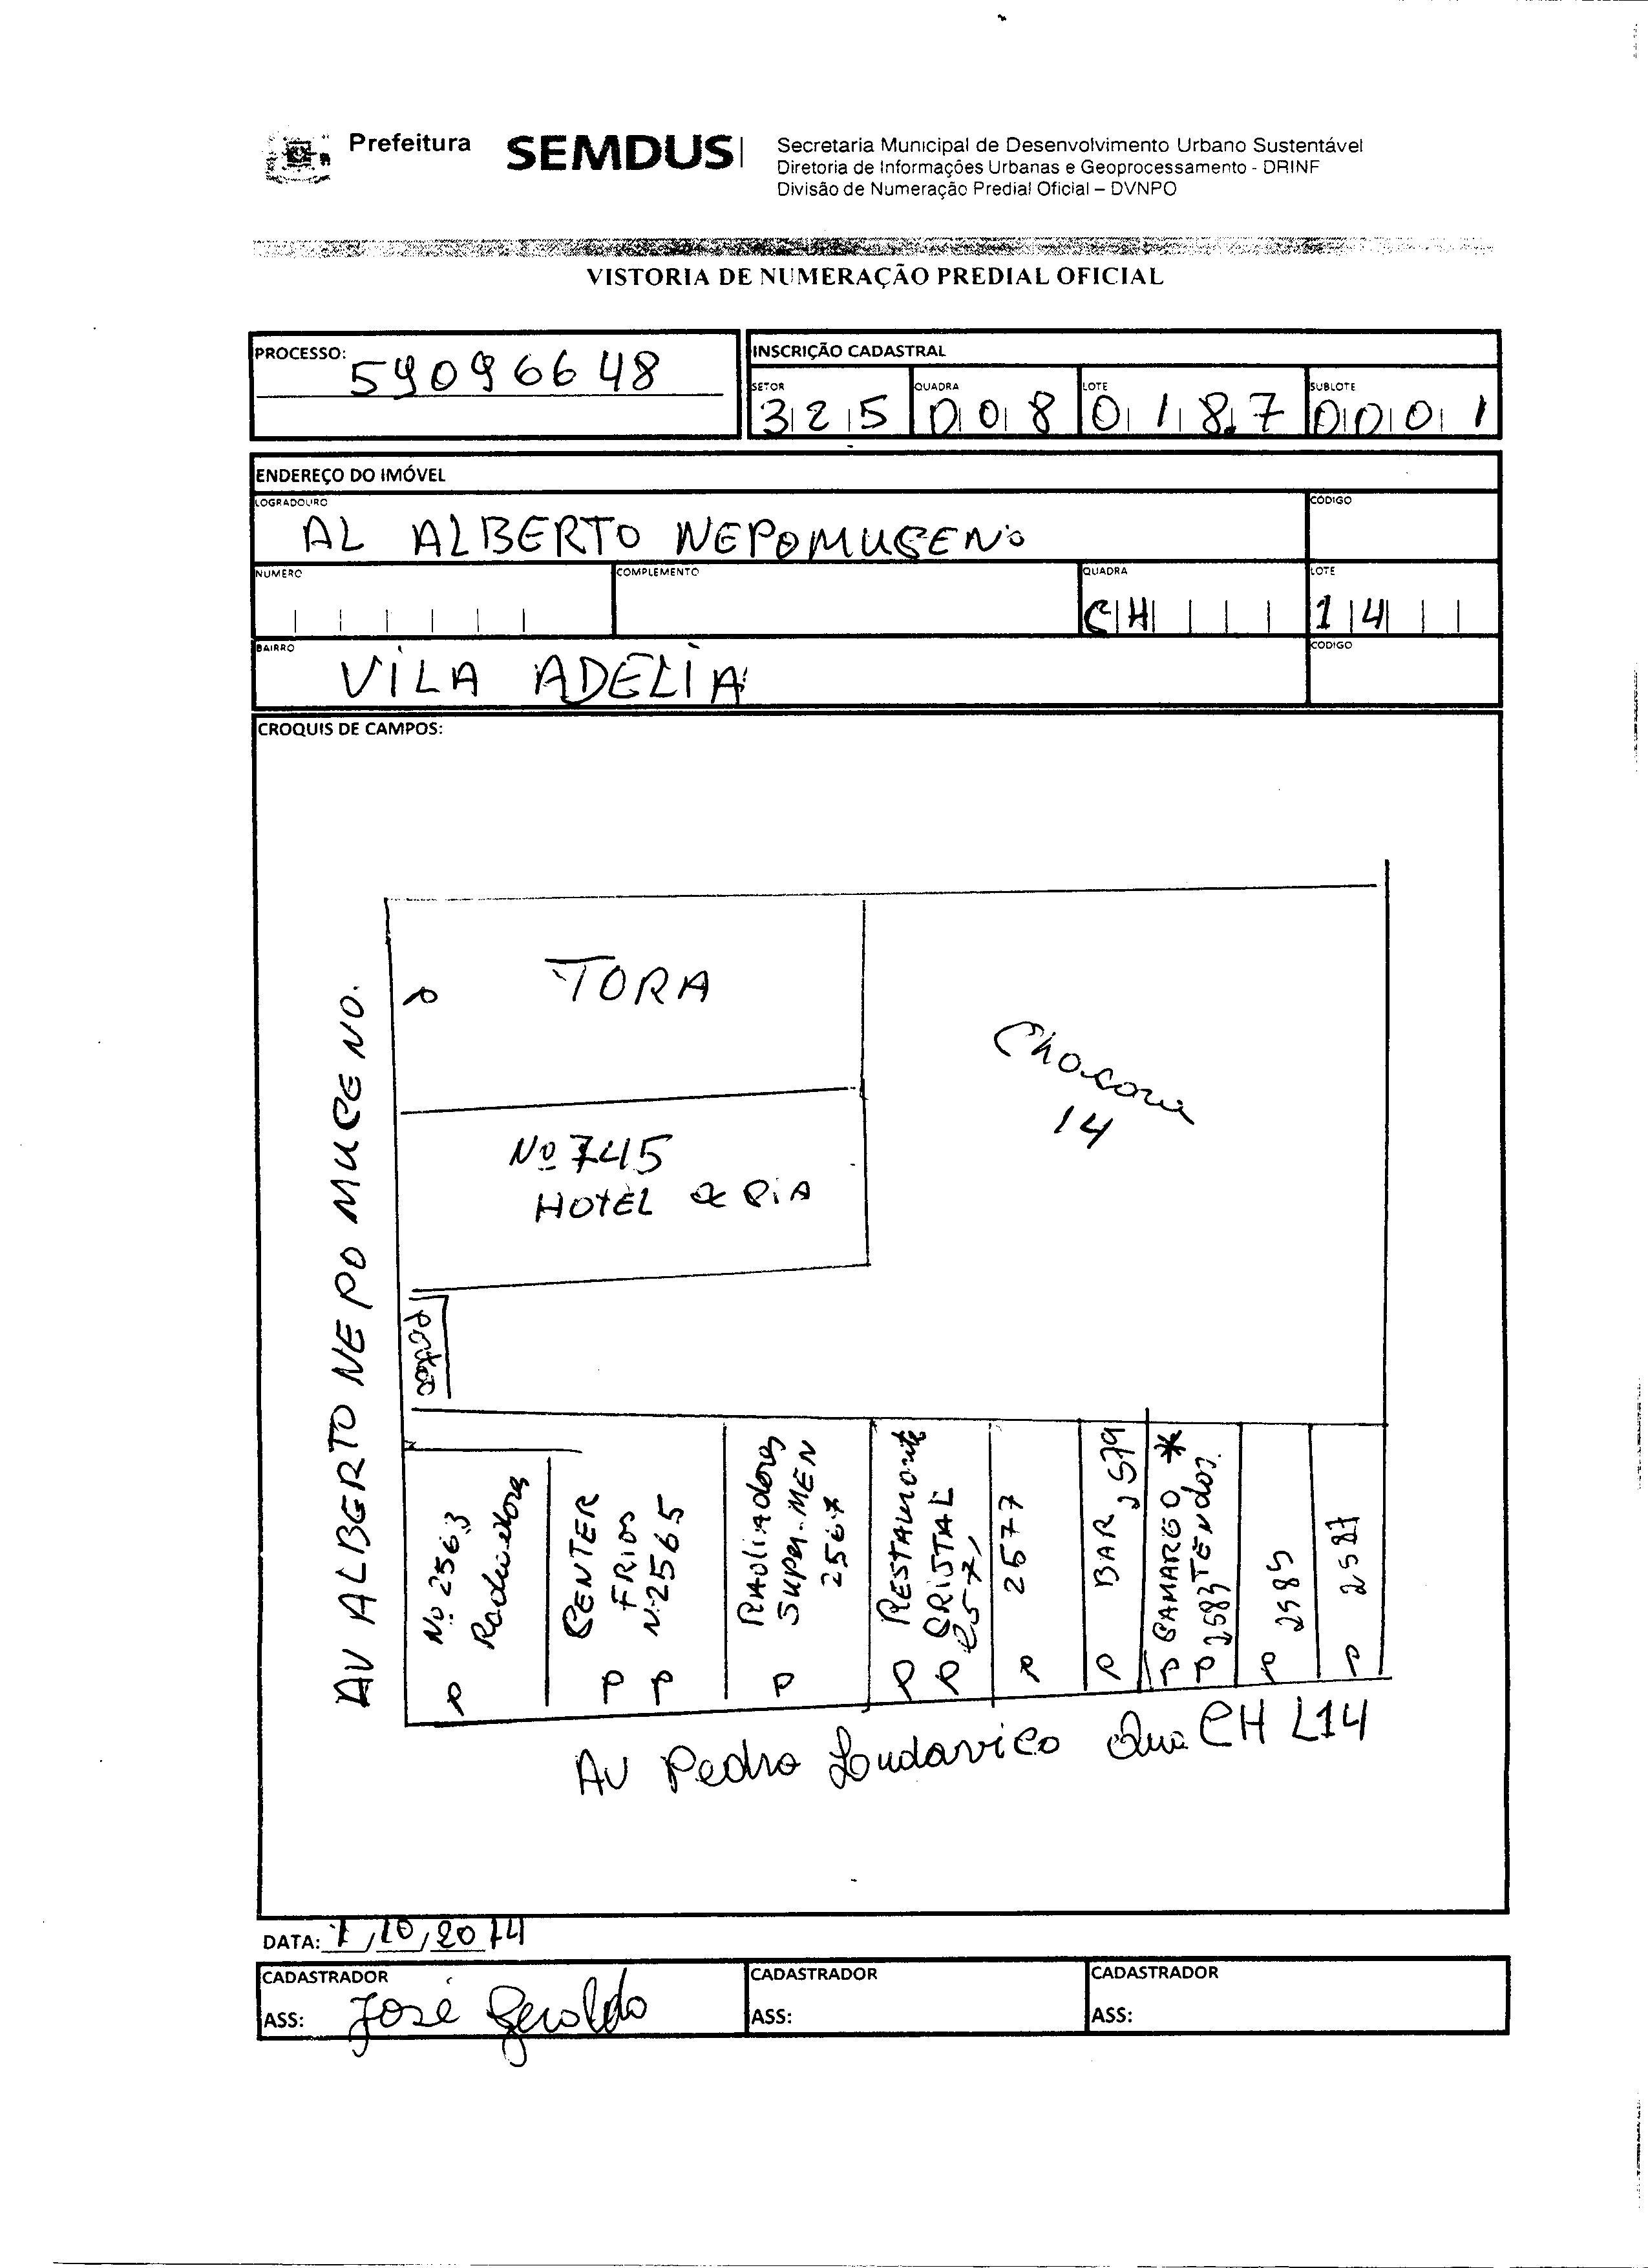 Prefeitura SEMDUS
Secretaria Municipal de Desenvolvimento Urbano Sustentável
Diretoria de Informações Urbanas e Geoprocessamento - DRINF
Divisão de Numeração Predial Oficial – DVNPO
VISTORIA DE NUMERAÇÃO PREDIAL OFICIAL
PROCESSO: 59096648
INSCRIÇÃO CADASTRAL
SETOR QUADRA LOTE SUBLOTE
325 008 0187 0001
ENDEREÇO DO IMÓVEL
LOGRADOURO CODIGO
AL ALBERTO NEPOMUCENO
NUMERO COMPLEMENTO QUADRA LOTE
CH 14
BAIRRO CODIGO
VILA ADELIA
CROQUIS DE CAMPOS:
AV ALBERTO NEPOMUCENO.
P
TORA
Chacara
14
Nº 745
HOTEL & CIA
Portão
Nº 2563
P
CENTER
FRIOS
N-2565
P P
SUPER-MEN
2567
P
RESTAURANTE
CRISTAL
P P
2577
P
BAR 2579
P
CAMARGO *
2583 TENDAS.
P P
2585
P
2587
P
AV Pedro Ludovico Qua CH L14
DATA: 1/10/2014
CADASTRADOR CADASTRADOR CADASTRADOR
ASS: José Geraldo ASS: ASS: